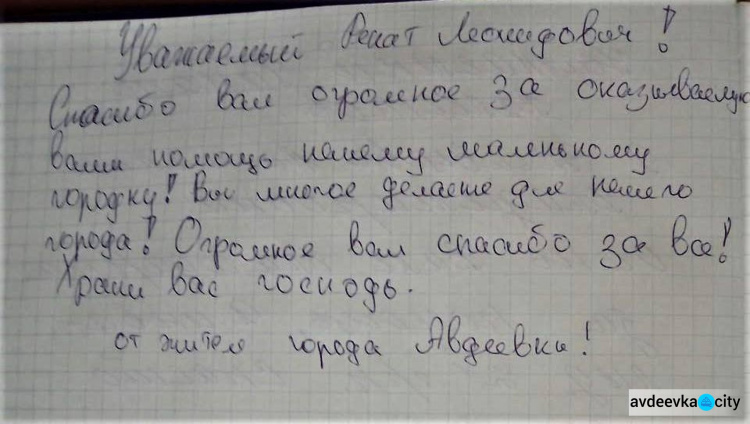 Уважаемый Ренат Леонидович!
Спасибо вам огромное за оказываемую
вами помощь нашему маленькому
городку! Вы многое делаете для нашего
города! Огромное вам спасибо за все!
Храни вас господь.
от жителя города Авдеевки!
avdeevka.city